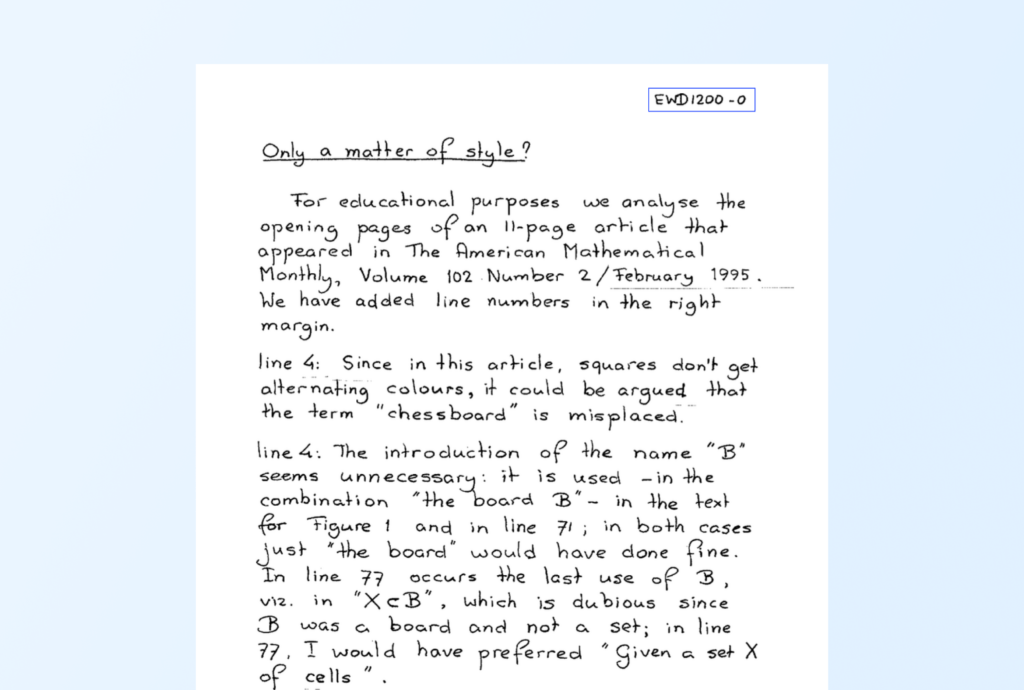 EWD1200-0
Only a matter of style?
For educational purposes we analyse the
opening pages of an 11-page article that
appeared in The American Mathematical
Monthly, Volume 102 Number 2/February 1995.
We have added line numbers in the right
margin.
line 4: Since in this article, squares don't get
alternating colours, it could be argued that
the term "chessboard" is misplaced.
line 4: The introduction of the name "B"
seems unnecessary: it is used -in the
combination "the board B"- in the text
for Figure 1 and in line 71; in both cases
just "the board" would have done fine.
In line 77 occurs the last use of B,
viz. in "X⊂B", which is dubious since
B was a board and not a set; in line
77, I would have preferred "Given a set X
of cells".